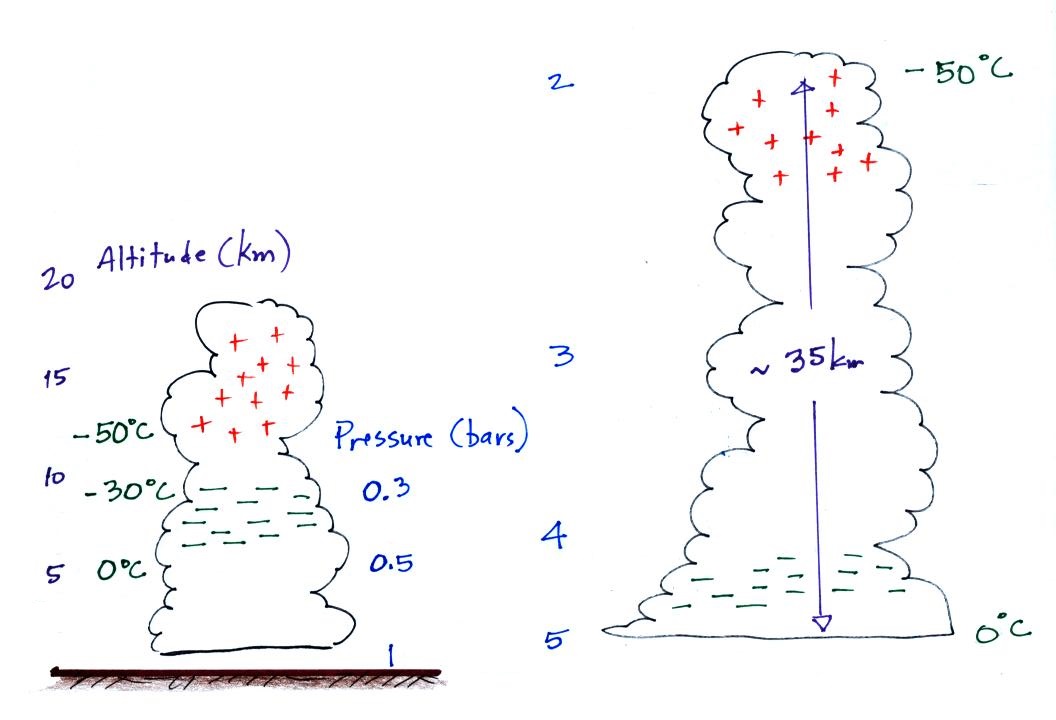 Altitude (km)
20
15
-50°C
10
-30°C
5
0°C
Pressure (bars)
0.3
0.5
1
2
-50°C
3
~ 35km
4
5
0°C